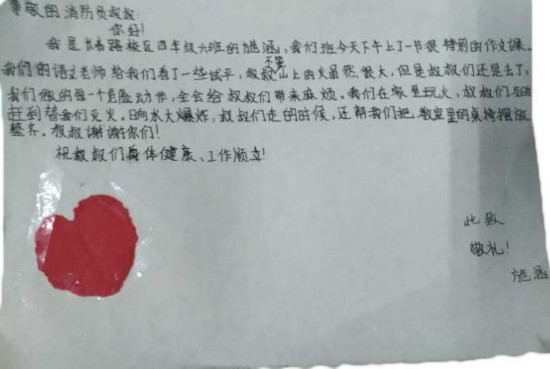 尊敬的消防员叔叔
你好！
我是长春路校区四年级六班的施涵，我们班今天下午上了一节很特别的作文课。
我们的语文老师给我们看了一些试平，叔叔不管山上的火虽然很大，但是叔叔们还是去了，
我们做的每一个危险动作，全会给叔叔们带来麻烦。我们在家里玩火，叔叔们
赶到替我们灭火。日向水大爆炸，叔叔们走的时候，还帮我们把教室里的桌椅摆放
整齐。叔叔谢谢你们！
祝叔叔们身体健康、工作顺立！
此致
敬礼！
施涵